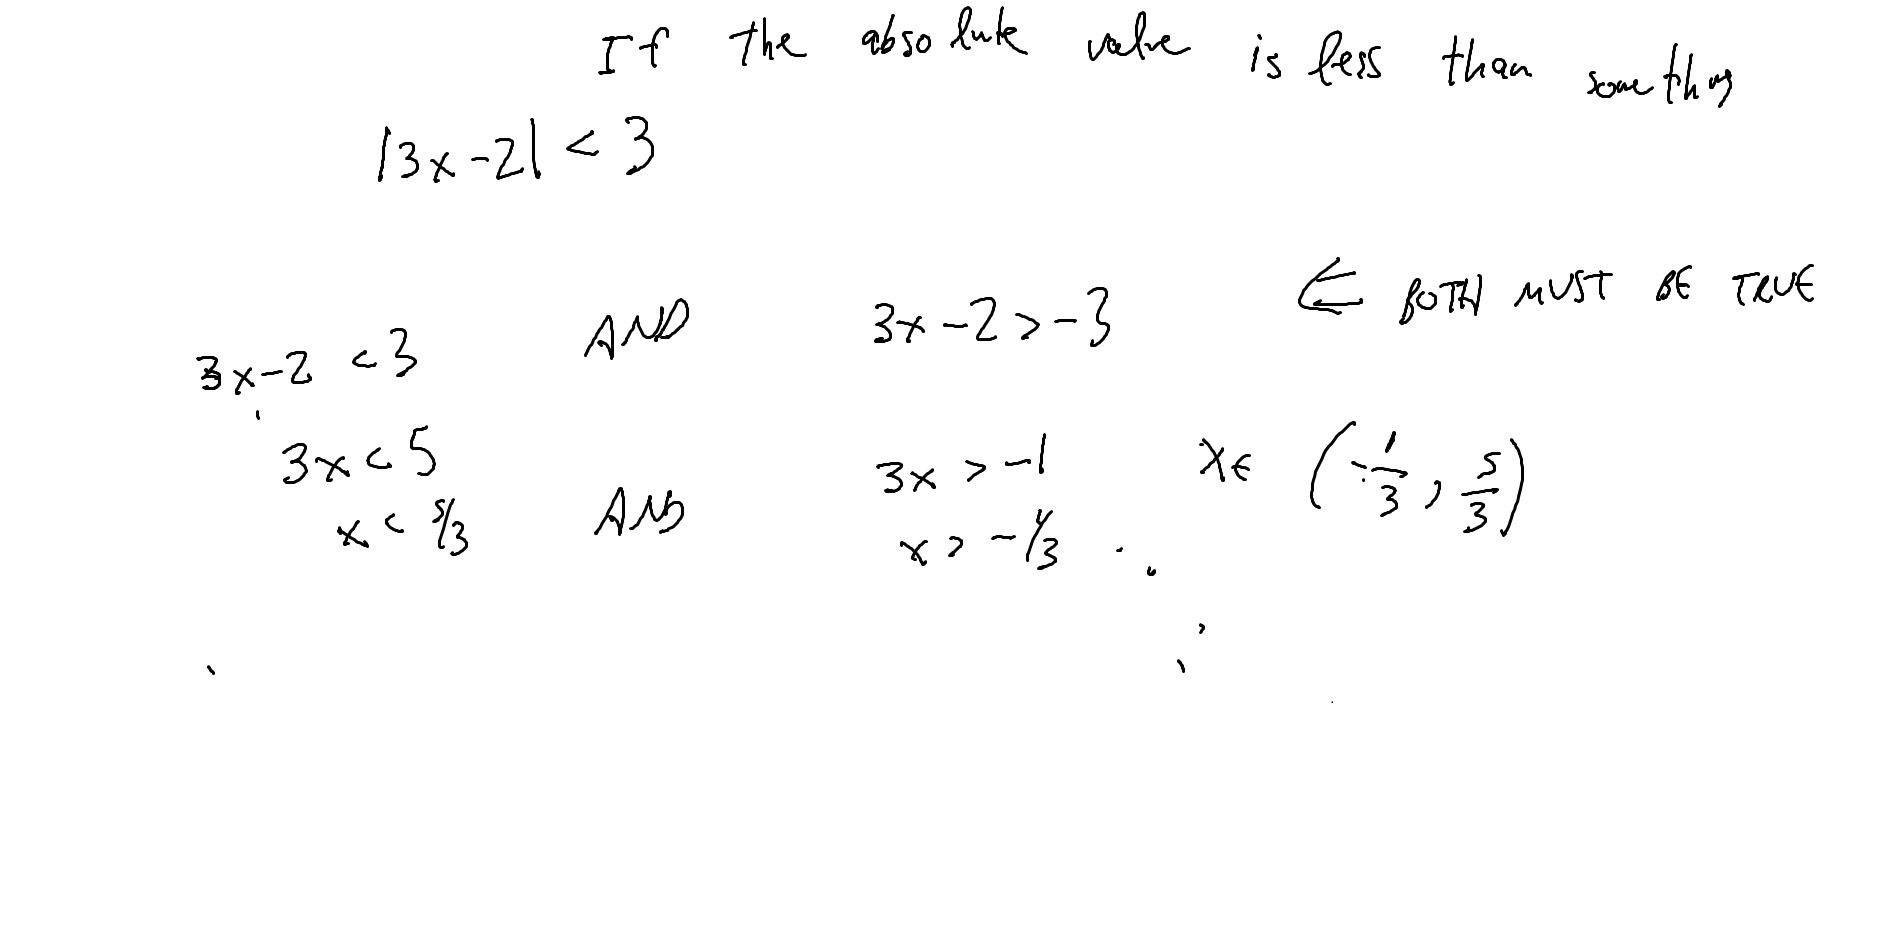 If the absolute value is less than something
|3x-2| < 3
3x-2 < 3 AND 3x-2 > -3 ⇐ BOTH MUST BE TRUE
3x < 5 3x > -1 x ∈ (-1/3, 5/3)
x < 5/3 AND x > -1/3